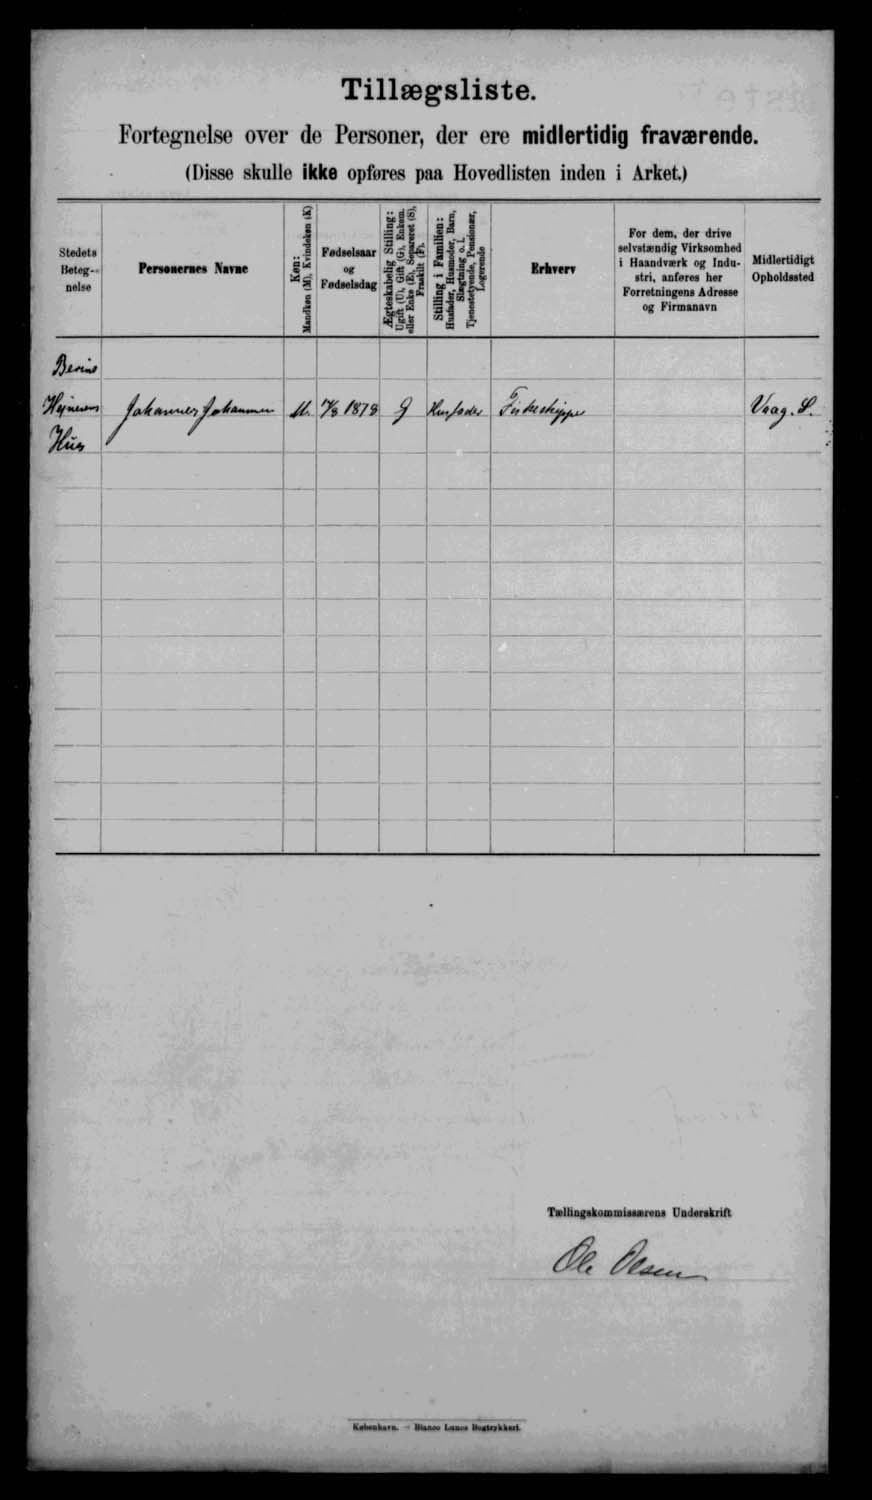 Tillægsliste.
Fortegnelse over de Personer, der ere midlertidig fraværende.
(Disse skulle ikke opføres paa Hovedlisten inden i Arket.)
Stedets
Beteg-
nelse
Personernes Navne
Køn:
Mandkøn (M), Kvindekøn (K)
Fødselsaar
og
Fødselsdag
Ægteskabelig Stilling:
Ugift (U), Gift (G), Enkem.
eller Enke (E), Separeret (S),
Fraskilt (F).
Stilling i Familien:
Husfader, Husmoder, Barn,
Slægtning o. l.
Tjenestetyende, Pensionær,
Logerende
Erhverv
For dem, der drive
selvstændig Virksomhed
i Haandværk og Indu-
stri, anføres her
Forretningens Adresse
og Firmanavn
Midlertidigt
Opholdssted
Johannes Johannesen M. 1878 G Husfader Fiskeskipper Vaag. S.
Hus
Tællingskommissærens Underskrift
Ole Olsen
København. — Bianco Lunos Bogtrykkeri.